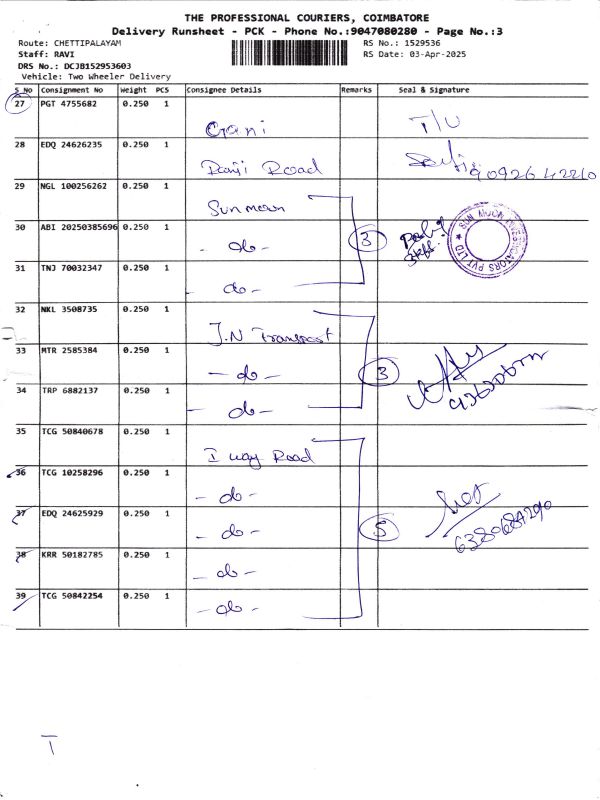 THE PROFESSIONAL COURIERS, COIMBATORE
Delivery Runsheet - PCK - Phone No.:9047080280 - Page No.:3
Route: CHETTIPALAYAM RS No.: 1529536
Staff: RAVI RS Date: 03-Apr-2025
DRS No.: DCJB152953603
Vehicle: Two Wheeler Delivery
S No Consignment No Weight PCS Consignee Details Remarks Seal & Signature
27 PGT 4755682 0.250 1 Gani T/U
28 EDQ 24626235 0.250 1 Ranji Road
29 NGL 100256262 0.250 1 Sunmoon
30 ABI 20250385696 0.250 1 - do - 3 SUN MOON PVT LTD
31 TNJ 70032347 0.250 1 - do -
32 NKL 3508735 0.250 1 J.N Transport
33 MTR 2585384 0.250 1 - do - 3
34 TRP 6882137 0.250 1 - do -
35 TCG 50840678 0.250 1 I way Road
36 TCG 10258296 0.250 1 - do -
37 EDQ 24625929 0.250 1 - do - 5
38 KRR 50182785 0.250 1 - do -
39 TCG 50842254 0.250 1 - do -
T